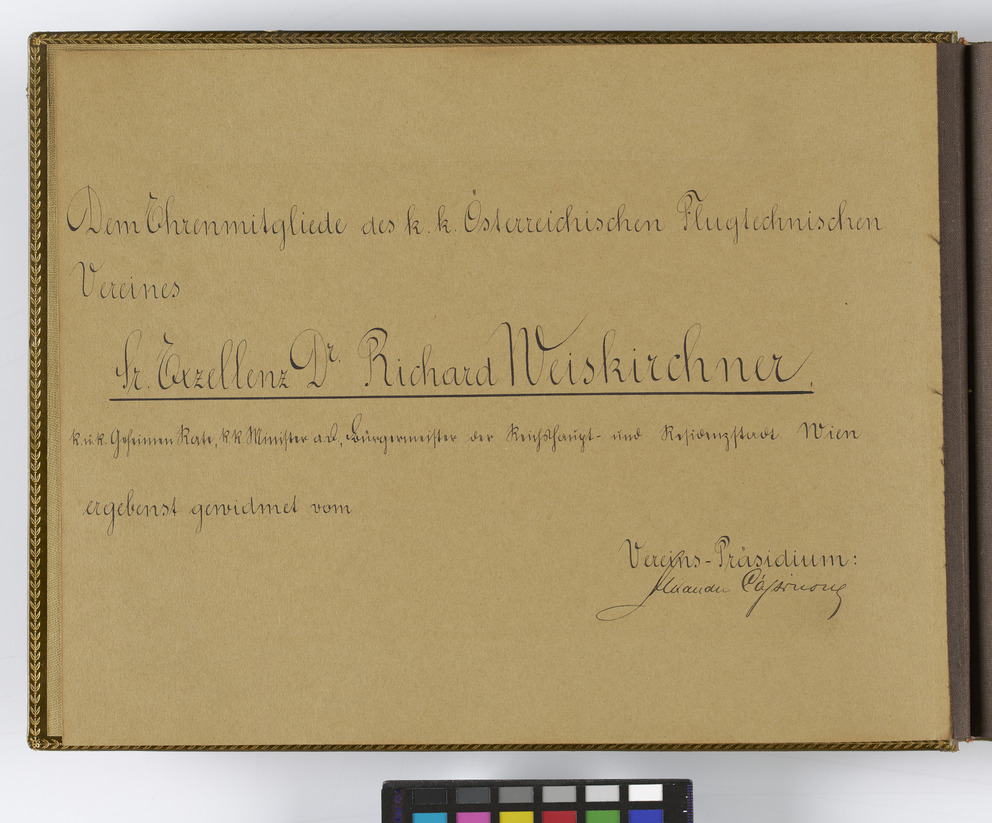 Dem Ehrenmitgliede des k. k. Österreichischen Flugtechnischen
Vereines
Sr. Exzellenz Dr. Richard Weiskirchner.
k. u. k. Geheimen Rate, k k Minister a. D., Bürgermeister der Reichshaupt- und Residenzstadt Wien
ergebenst gewidmet vom
Vereins-Präsidium:
Alexander Cassinone